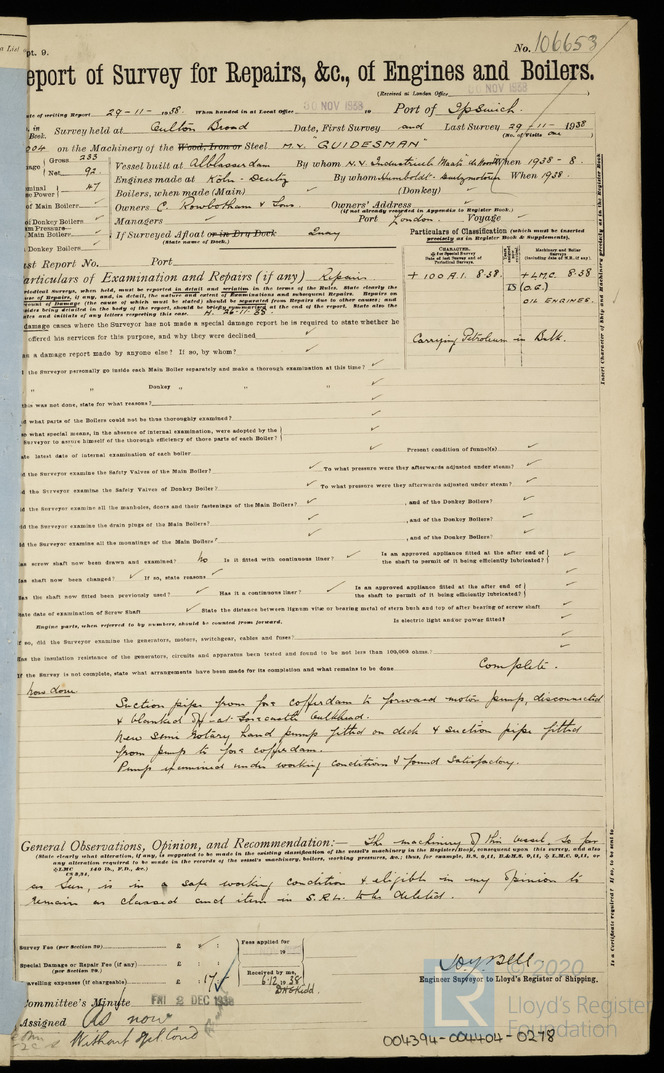 pt. 9.
No. 106653
eport of Survey for Repairs, &c., of Engines and Boilers.
(Received at London Office 30 NOV 1938)
ate of writing Report 29-11-1938. When handed in at Local Office 30 NOV 1938 19 Port of Ipswich.
Survey held at Oulton Broad Date, First Survey and Last Survey 29-11-1938
(No. of Visits one.)
on the Machinery of the Wood, Iron or Steel M.V. "GUIDESMAN"
Gross 233
Net 92
Vessel built at Alblasserdam By whom N.V. Industrieele When 1938-8.
Engines made at Köln-Deutz By whom Humboldt-Deutzmotoren When 1938.
47
Boilers, when made (Main) (Donkey)
of Main Boilers
Owners C. Rowbotham & Sons. Owners' Address
(if not already recorded in Appendix to Register Book.)
of Donkey Boilers
Managers Port London. Voyage
Main Boilers
If Surveyed Afloat or in Dry Dock Quay
(State name of Dock.)
Donkey Boilers
Particulars of Classification (which must be inserted precisely as in Register Book & Supplements).
st Report No. Port
+ 100 A.1. 8.38. + L.M.C. 8.38
TS (O.G.)
OIL ENGINES.
Carrying Petroleum in Bulk.
articulars of Examination and Repairs (if any) Repairs
damage cases where the Surveyor has not made a special damage report he is required to state whether he
offered his services for this purpose, and why they were declined
as a damage report made by anyone else? If so, by whom?
d the Surveyor personally go inside each Main Boiler separately and make a thorough examination at this time?
" " Donkey " " "
this was not done, state for what reasons?
d what parts of the Boilers could not be thoroughly examined?
o what special means, in the absence of internal examination, were adopted by the
Surveyor to assure himself of the thorough efficiency of those parts of each Boiler?
ate latest date of internal examination of each boiler Present condition of funnel(s)
d the Surveyor examine the Safety Valves of the Main Boiler? To what pressure were they afterwards adjusted under steam?
d the Surveyor examine the Safety Valves of Donkey Boiler? To what pressure were they afterwards adjusted under steam?
d the Surveyor examine all the manholes, doors and their fastenings of the Main Boilers? , and of the Donkey Boilers?
d the Surveyor examine the drain plugs of the Main Boilers? , and of the Donkey Boilers?
d the Surveyor examine all the mountings of the Main Boilers? , and of the Donkey Boilers?
as screw shaft now been drawn and examined? No Is it fitted with continuous liner? Is an approved appliance fitted at the after end of
the shaft to permit of it being efficiently lubricated?
as shaft now been changed? If so, state reasons
as the shaft now fitted been previously used? Has it a continuous liner? Is an approved appliance fitted at the after end of
the shaft to permit of it being efficiently lubricated?
tate date of examination of Screw Shaft State the distance between lignum vitæ or bearing metal of stern bush and top of after bearing of screw shaft
Engine parts, when referred to by numbers, should be counted from forward. Is electric light and/or power fitted?
f so, did the Surveyor examine the generators, motors, switchgear, cables and fuses?
as the insulation resistance of the generators, circuits and apparatus been tested and found to be not less than 100,000 ohms?
f the Survey is not complete, state what arrangements have been made for its completion and what remains to be done Complete.
Now done
Suction pipe from for cofferdam to forward motor pump, disconnected
& blanked off at forecastle bulkhead.
New Semi Rotary hand pump fitted on deck & suction pipe fitted
from pump to for cofferdam.
Pump examined under working conditions & found Satisfactory.
General Observations, Opinion, and Recommendation:- The machinery of this vessel, so far
(State clearly what alteration, if any, is suggested to be made in the existing classification of the vessel's machinery in the Register Book, consequent upon this survey, and also
any alteration required to be made in the records of the vessel's machinery, boilers, working pressures, &c.; thus, for example, B.S. 9,11, B.&M.S. 9,11, + L.M.C. 9,11, or
+LMC 140 lb., F.D., &c.)
as seen, is in a safe working condition & eligible in my opinion to
remain as classed and item in S.R.L. to be deleted.
Survey Fee (per Section 29) £ : :
Special Damage or Repair Fee (if any) £ : :
(per Section 29.)
avelling expenses (if chargeable) £ : 17 :
Fees applied for
19
Received by me,
6.12.1938
Engineer Surveyor to Lloyd's Register of Shipping.
Committee's Minute FRI 2 DEC 1938
Assigned As now
Without Spl. Cond
Insert Character of Ship and Machinery precisely as in the Register Book
Is a Certificate required? If so, to be sent to
© 2020
LR
Lloyd's Register
Foundation
004394-004404-0278